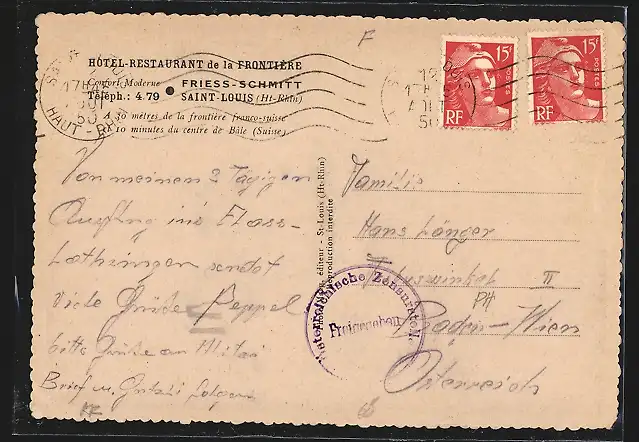 HÔTEL-RESTAURANT de la FRONTIÈRE
Confort Moderne
FRIESS-SCHMITT
Téléph: 4.79
SAINT-LOUIS (Ht-Rhin)
A 30 mètres de la frontière franco-suisse
10 minutes du centre de Bâle (Suisse)
Von meinem 2 tägigen
Ausflug ins Elsass-
Lothringen sendet
viele Grüße Beppel
bitte Grüße an
Brief u. folgen
éditeur - St-Louis (Ht-Rhin)
Reproduction interdite
Familie
Hans Länger
II
Wien
Österreich
Oesterreichische Zensurstelle
Freigegeben
15f
POSTES
RF
15f
POSTES
RF
HAUT-RHIN
F